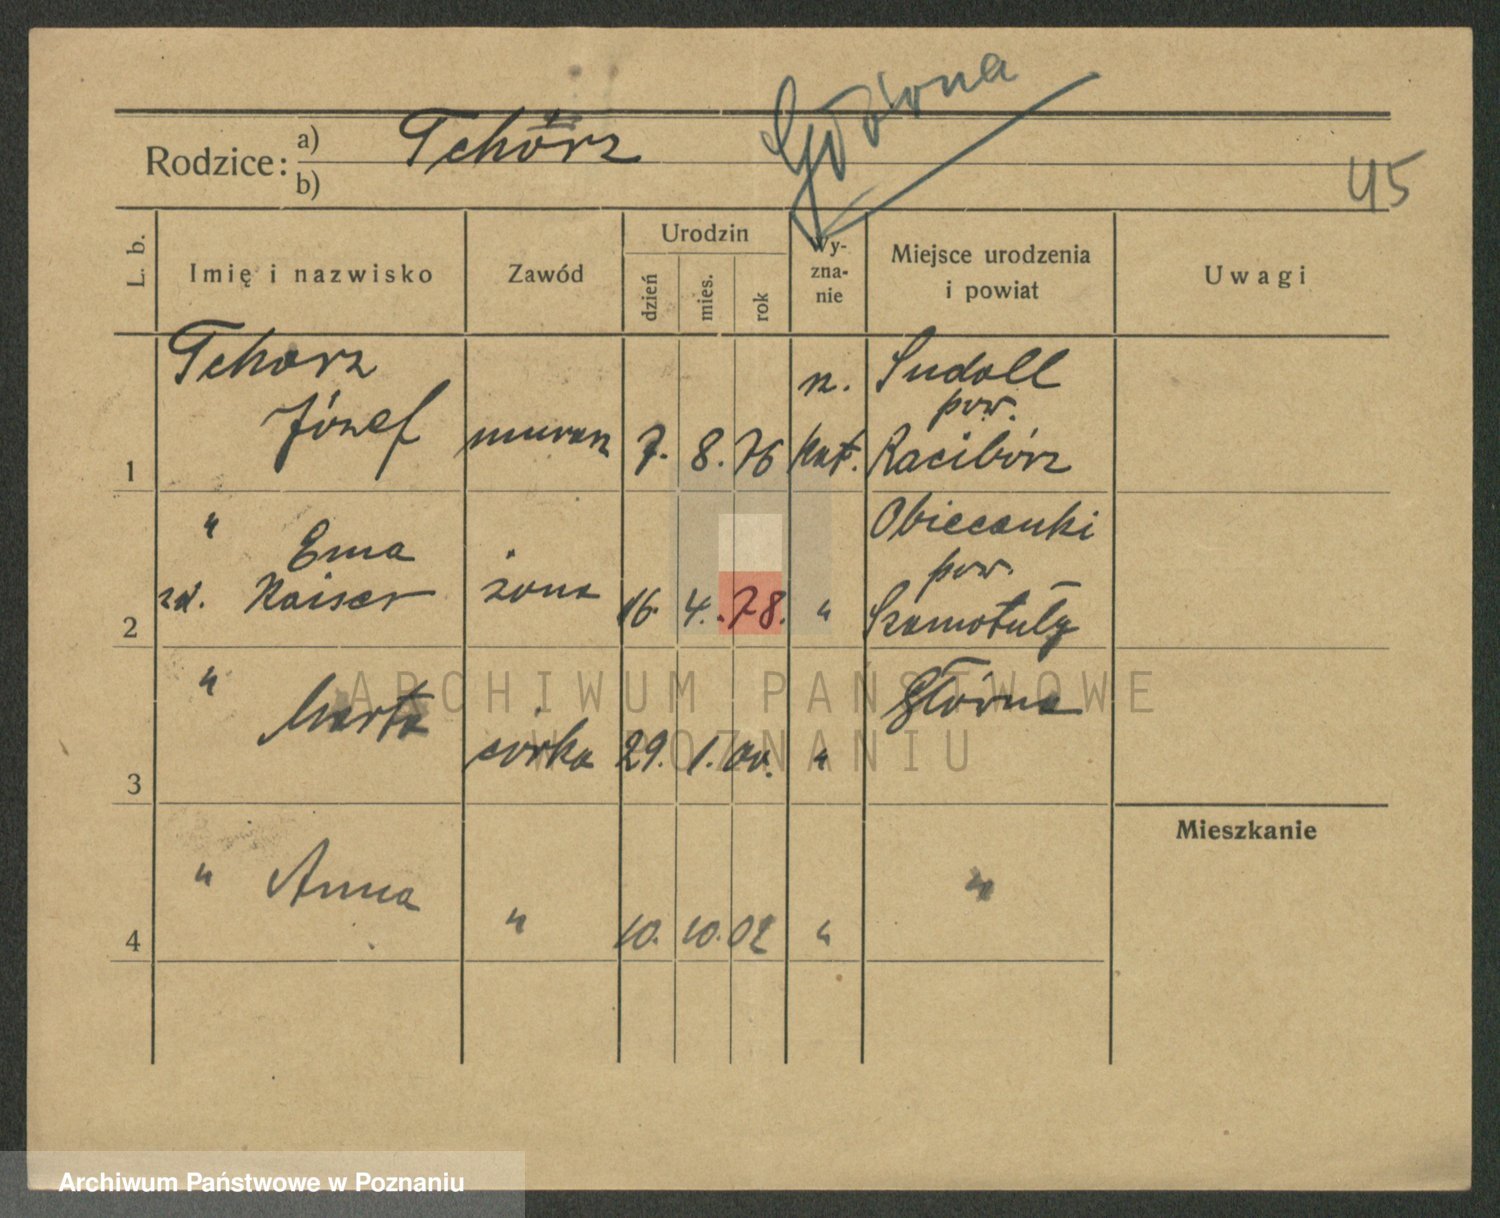 Główna
Rodzice: a) Tchórz
b)
45
L. b.
Imię i nazwisko
Zawód
Urodzin
dzień
mies.
rok
Wy-
zna-
nie
Miejsce urodzenia
i powiat
Uwagi
Tchorz
Józef
1
murarz
7. 8. 76
rz.
kat.
Sudoll
pow.
Racibórz
" Ema
zd. Kaiser
2
żona
16. 4. 78. "
Obiecanki
pow.
Szamotuły
" Marta
3
córka 29. 1. 00. "
Główna
" Anna
4
" 10. 10. 02 " "
Mieszkanie
ARCHIWUM PAŃSTWOWE
W POZNANIU
Archiwum Państwowe w Poznaniu